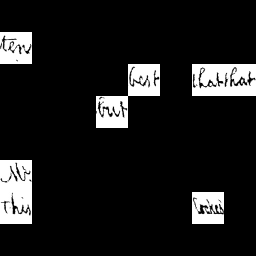 ten
best that that
but
Mr.
This